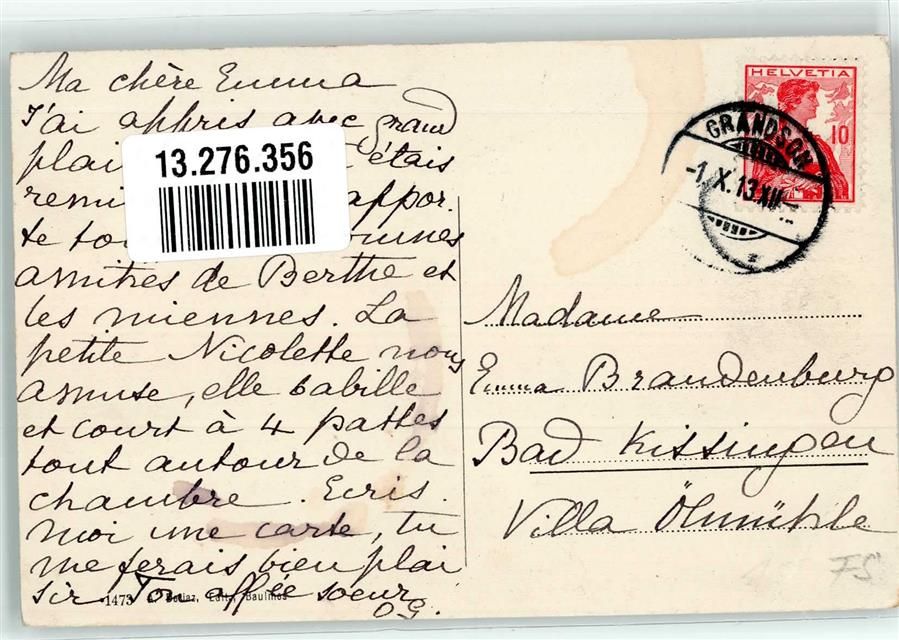 Ma chère Emma
J'ai appris avec grand
plai étais
remi appor
te to onnes
amitiés de Berthe et
les miennes. La
petite Nicolette nous
amuse, elle babille
et court à 4 pattes
tout autour de la
chambre. Ecris.
moi une carte, tu
me ferais bien plai
sir Ton affée soeur
O G.
13.276.356
1473 Editr, Baulmes
HELVETIA
10
GRANDSON
-1.X.13.XII-
Madame
Emma Brandenburg
Bad Kissingen
Villa Ölmühle
FS